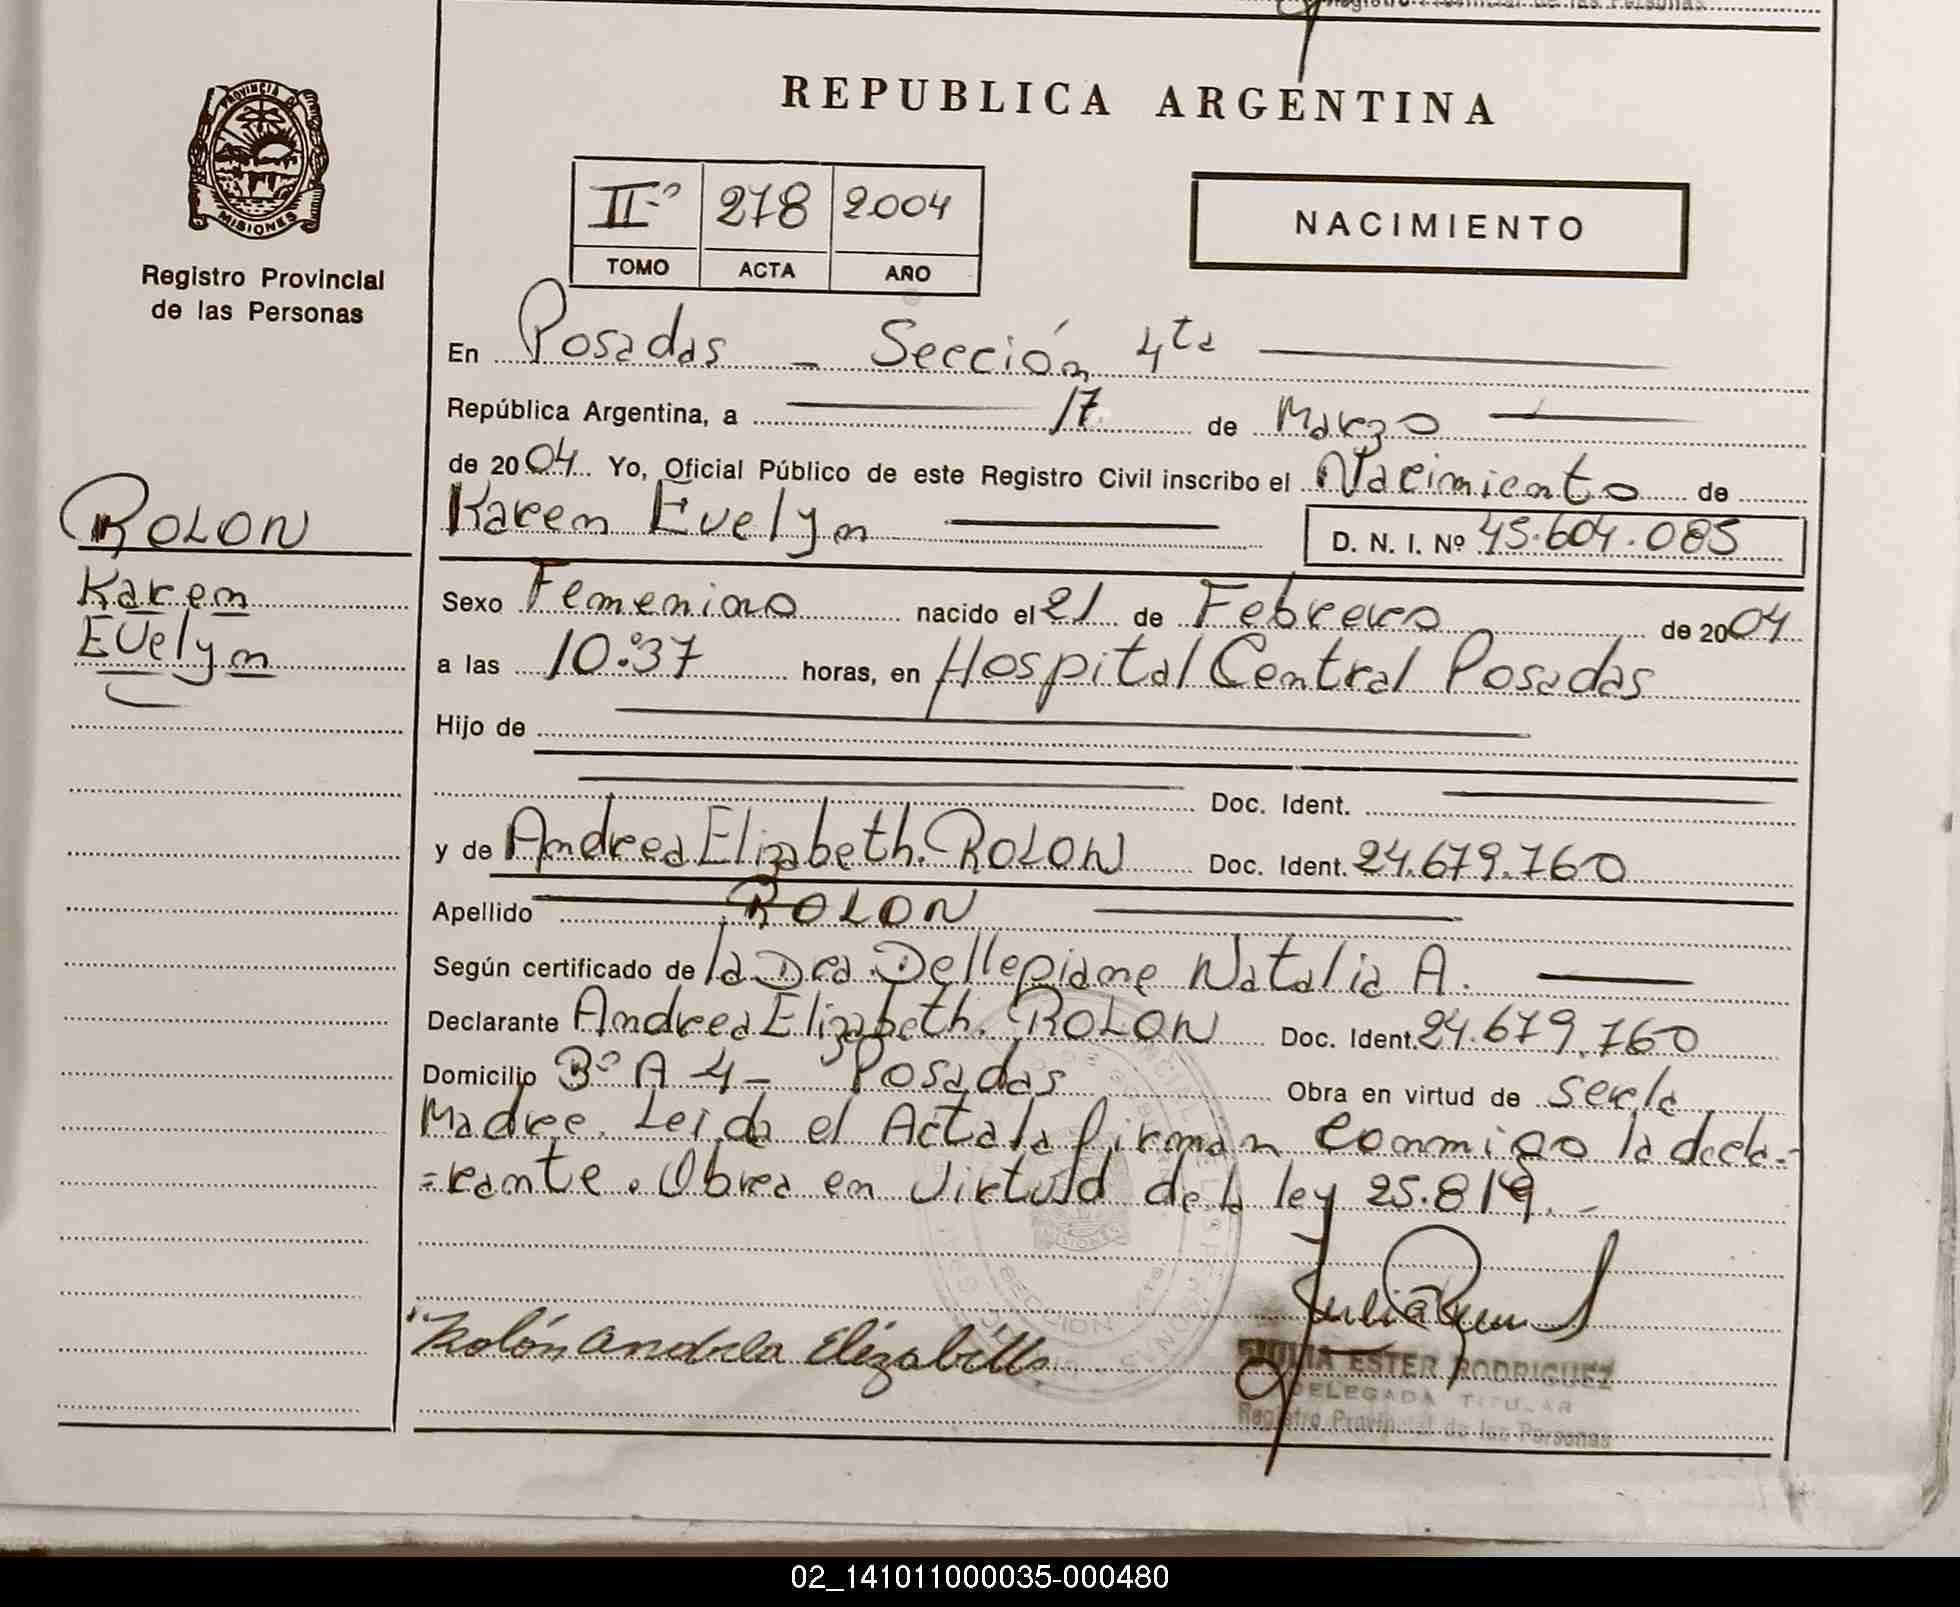 Registro Provincial de las Personas
REPUBLICA ARGENTINA
PROVINCIA D
MISIONES
Registro Provincial
de las Personas
II-º 278 2004
TOMO ACTA AÑO
NACIMIENTO
En Posadas - Sección 4ta
República Argentina, a 17 de Marzo
de 2004 Yo, Oficial Público de este Registro Civil inscribo el Nacimiento de
ROLON
Karen
Evelyn
Karen Evelyn D. N. I. Nº 45.604.085
Sexo Femenino nacido el 21 de Febrero de 2004
a las 10:37 horas, en Hospital Central Posadas
Hijo de
Doc. Ident.
y de Andrea Elizabeth. ROLON Doc. Ident. 24.679.760
Apellido ROLON
Según certificado de la Dra. Dellepiane Natalia A.
Declarante Andrea Elizabeth. ROLON Doc. Ident. 24.679.760
Domicilio Bº A 4 - Posadas Obra en virtud de ser la
Madre. Leida el Acta la firman conmigo la decla-
=rante. Obra en Virtud de la ley 25.819.-
MISIONES
SECCION
Rolón Andrea Elizabeth
ESTER RODRIGUEZ
DELEGADA TITULAR
Registro Provincial de las Personas
02_141011000035-000480